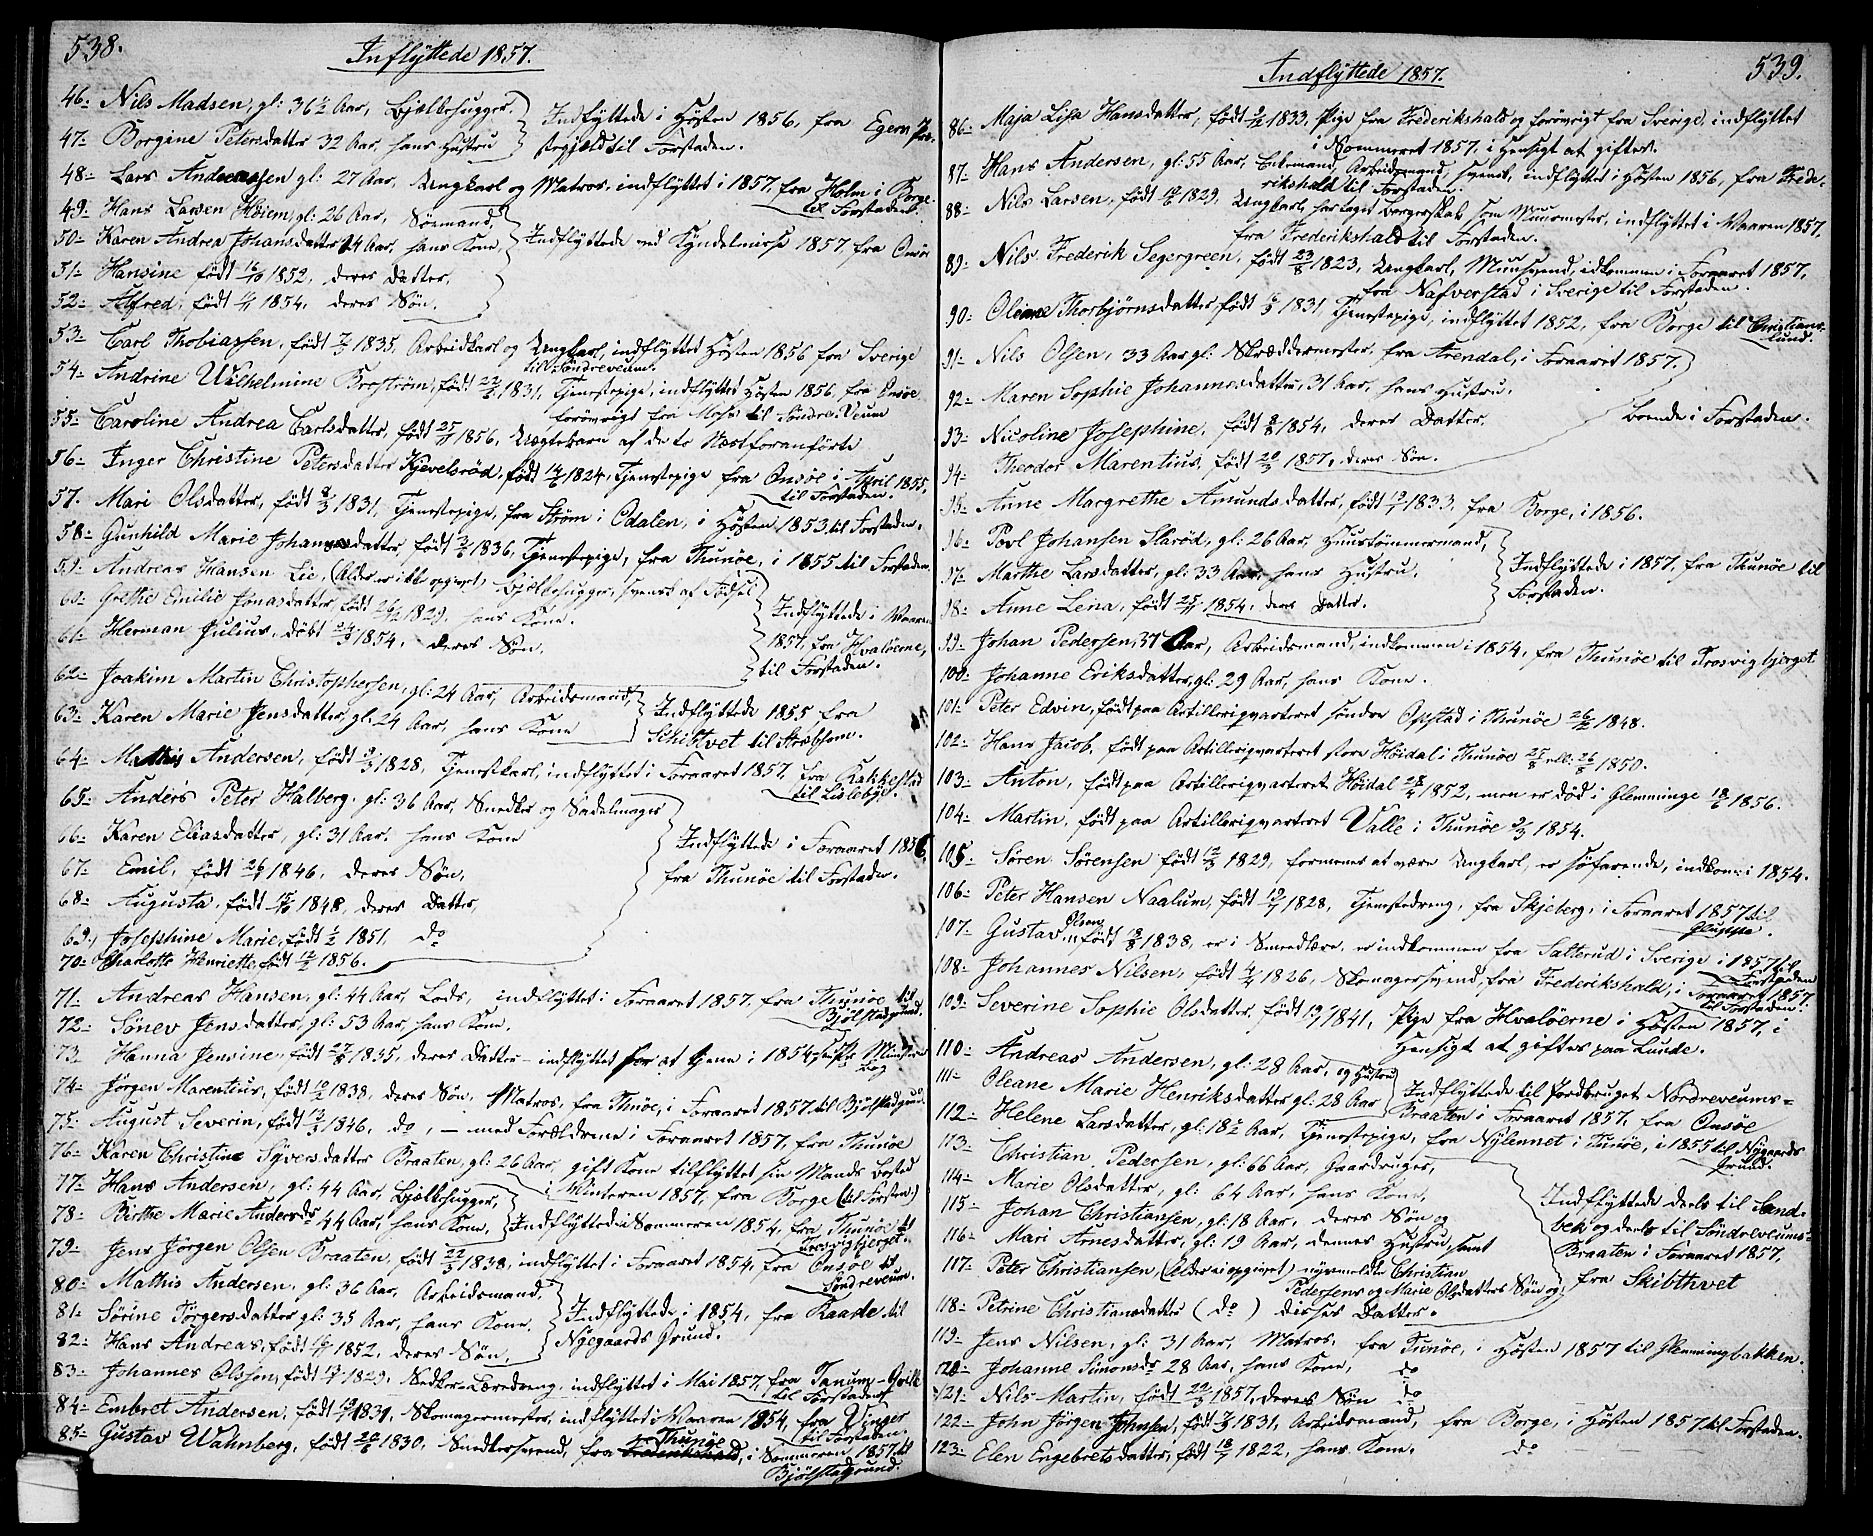 538.
Indflyttede 1857.
46.- Nils Madsen, gl: 36½ Aar, Bjælkehugger.
47.- Borgine Petersdatter 32 Aar, hans Hustru
Indflyttede i Høsten 1856, fra Egern Præ-
stegjeld til Forstaden.
48.- Lars Andreassen gl: 27 Aar, Ungkarl og Matros, indflyttet i 1857, fra Holm i Borge
til Forstaden.
49.- Hans Larsen gl: 26 Aar, Sømand,
50.- Karen Andrea Johansdatter 24 Aar, hans Kone,
Indflyttede ved Kyndelmisse 1857, fra Onsø
51.- Hansine født 1852, deres Datter,
52.- Alfred, født 1854, deres Søn,
53.- Carl Thobiassen, født 1835, Arbeidskarl og Ungkarl, indflyttet Høsten 1856 fra Sverige
til Søndreveum.
54.- Andrine Wilhelmine født 1831, Tjenestepige, indflyttet Høsten 1856, fra Onsøe
forøvrigt fra Moss til Søndre Veum
55.- Caroline Andrea Carlsdatter, født 25 1856, Uægtebarn af de to Næstforanførte
56.- Inger Christine Petersdatter Kjevelsrød, født 1824, Tjenestepige fra Onsøe i April 1855,
til Forstaden.
57. Mari Olsdatter, født 1831, Tjenestepige, fra Strøm i Odalen, i Høsten 1853 til Forstaden.
58.- Gunhild Marie Johannesdatter, født 1836, Tjenestepige, fra Thunøe, i 1855 til Forstaden.
59.- Andreas Hansen Lie, (Alder er ikke opgivet) Bjælkehugger, svensk af Fødsel
60.- Grethe Emilie Jonasdatter, født 1829, hans Kone.
61.- Herman Julius, døbt 1854, deres Søn.
Indflyttede i Vaaren
1857, fra Hvaløerne,
til Forstaden.
62.- Joakim Martin Christophersen, gl: 24 Aar, Arbeidsmand,
63.- Karen Marie Jensdatter, gl: 24 Aar, hans Kone
Indflyttede 1855 fra
Schibtvet til
64.- Mathis Andersen, født 1828, Tjenestekarl, indflyttet i Foraaret 1857, fra Rakkestad
til Lislebye.
65.- Anders Peter Halberg, gl: 36 Aar, Snedker og Sadelmager
66.- Karen Eliasdatter, gl: 31 Aar, hans Kone
67.- Emil, født 26 1846, deres Søn,
68.- Augusta, født 1848, deres Datter,
69.- Josephine Marie, født ½ 1851, do
70.- Charlotte Henriette, født 12/2 1856.
Indflyttede i Foraaret 1856,
fra Thunøe til Forstaden.
71.- Andreas Hansen, gl: 44 Aar, Lods, indflyttet i Foraaret 1857, fra Thunøe til
Bjølstadgrund.
72.- Jensdatter, gl: 53 Aar, hans Kone.
73.- Hanna Jensine, født 27 1835, deres Datter - indflyttet for at tjene i 1854,
74.- Jørgen Marentius, født 1838, deres Søn, Matros, fra Thunøe, i Foraaret 1857 til Bjølstadgrund.
75.- August Severin, født 1846, do, - med Forældrene i Foraaret 1857, fra Thunøe
76.- Karen Christine Syversdatter Braaten, gl: 26 Aar, gift Kone tilflyttet sin Mands Bosted
i Vinteren 1857, fra Borge (til Forstaden)
77.- Hans Andersen, gl: 44 Aar, Bjælkehugger,
78.- Birthe Marie Andersdr 44 Aar, hans Kone,
Indflyttede i Sommeren 1854, fra Thunøe til
Trosvigbjerget.
79.- Jens Jørgen Olsen Braaten, født 22 1838, indflyttet i Foraaret 1854, fra Onsøe til
Søndreveum.
80.- Mathis Andersen, gl: 36 Aar, Arbeidsmand,
81.- Sørine Tørgersdatter gl: 35 Aar, hans Kone,
82.- Hans Andreas, født 1852, deres Søn,
Indflyttede i 1854, fra Raade til
Nygaards Grund.
83.- Johannes Olssen, født 1829, Lædreng, indflyttet i Mai 1857, fra Tanum-
til Forstaden
84.- Embret Andersen, født 1831, Skomagermester, indflyttet i Vaaren 1854, fra Vinger
til Forstaden.
85.- Gustav Wahnberg, født 1830, Snedkersvend, fra Thunøe, i Sommeren 1857 til
Bjølstadgrund.
539.
Indflyttede 1857.
86.- Maja Lisa Hansdatter, født 1833, Pige fra Frederikshald og forøvrigt fra Sverige, indflyttet
i Sommeren 1857, i Hensigt at giftes.
87.- Hans Andersen, gl: 55 Aar, Enkemand, Arbeidsmand, svensk, indflyttet i Høsten 1856, fra Frede-
rikshald til Forstaden.
88.- Nils Larsen, født 1829, Ungkarl, har taget Borgerskab som Muurmester, indflyttet i Vaaren 1857,
fra Frederikshald til Forstaden.
89.- Nils Frederik Segergreen, født 23/8 1823, Ungkarl, Muursvend, indkommen i Foraaret 1857,
fra Nafverstad i Sverige til Forstaden.
90.- Oline Thorbjørnsdatter, født 1831, Tjenestepige, indflyttet 1852, fra Borge til Christians-
lund.
91.- Nils Olsen, 33 Aar gl: Skræddermester, fra Arendal, i Foraaret 1857.
92.- Maren Sophie Johannesdatter, 31 Aar, hans Hustru,
93.- Nicoline Josephine, født 8/8 1854, deres Datter,
94.- Theodor Marentius, født 1857, deres Søn.
boende i Forstaden.
95.- Anne Margrethe Amundsdatter, født 1833, fra Borge, i 1856.
96.- Povl Johansen Slarød, gl: 26 Aar, Huustømmermand,
97.- Marthe Larsdatter, gl: 33 Aar, hans Hustru,
98.- Anne Lena, født 25 1854, deres Datter.
Indflyttede i 1857, fra Thunøe til
Forstaden.
99.- Johan Pedersen, 37 Aar, Arbeidsmand, indkommen i 1854, fra Thunøe til Trosvigbjerget
100.- Johanne Eriksdatter, gl: 29 Aar, hans Kone.
101.- Peter Edvin, født paa Artilleriqvarteret søndre Opstad i Thunøe 26 1848.
102.- Hans Jacob, født paa Artilleriqvarteret store Høidal i Thunøe 25/8 ell: 26/8 1850.
103.- Anton, født paa Artilleriqvarteret Høidal 28 1852, men er død i Glemminge 18/2 1856.
104.- Martin, født paa Artilleriqvarteret Valle i Thunøe 1854.
105.- Søren Sørensen født 1829, formenes at være Ungkarl, er søfarende, indkom i 1854.
106.- Peter Hansen Naalum, født 1828, Tjenestedreng, fra Skjeberg, i Foraaret 1857 til
Gluppe.
107.- Gustav Olsen, født 1838, er i Smedlære, er indkommen fra Sætterud i Sverige i 1857 til
Forstaden
108.- Johannes Nilsen, født 1826, Skomagersvend, fra Frederikshald, i Foraaret 1857
til Forstaden.
109.- Severine Sophie Olsdatter, født 1841, Pige fra Hvaløerne i Høsten 1857, i
Hensigt at giftes paa Lunde.
110.- Andreas Andersen, gl: 28 Aar, og Hustru
111.- Oleane Marie Henriksdatter gl: 28 Aar
Indflyttede til Jordbruget Nordreveums-
Braaten i Foraaret 1857, fra Onsøe
112.- Helene Larsdatter, gl: 18½ Aar, Tjenestepige, fra Nylennet i Thunøe, i 1855 til Nygaards
Grund.
113.- Christian Pedersen, gl: 66 Aar, Gaardbruger,
114.- Marie Olsdatter, gl: 64 Aar, hans Kone,
115.- Johan Christiansen, gl: 18 Aar, deres Søn og
116.- Mari Arnesdatter, gl: 19 Aar, dennes Hustru, samt
117.- Peter Christiansen, (Alder ei opgivet) nysmeldte Christian
Pedersens og Marie Olsdatters Søn og
118.- Petrine Christiansdatter (do) disses Datter.
Indflyttede dels til Sand-
bek og dels til Søndreveums-
Braaten i Foraaret 1857,
fra Skibthvet
119.- Jens Nilsen, gl: 31 Aar, Matros, fra Tunøe, i Høsten 1857 til Glemmingbakken.
120.- Johanne Simonsdr 28 Aar, hans Kone, do
121.- Nils Martin, født 22 1857, deres Søn do
122.- John Jørgen Johnsen, født 1831, Arbeidsmand, fra Borge, i Høsten 1857 til Forstaden.
123.- Elen Engebretsdatter, født 18 1822, hans Kone. do